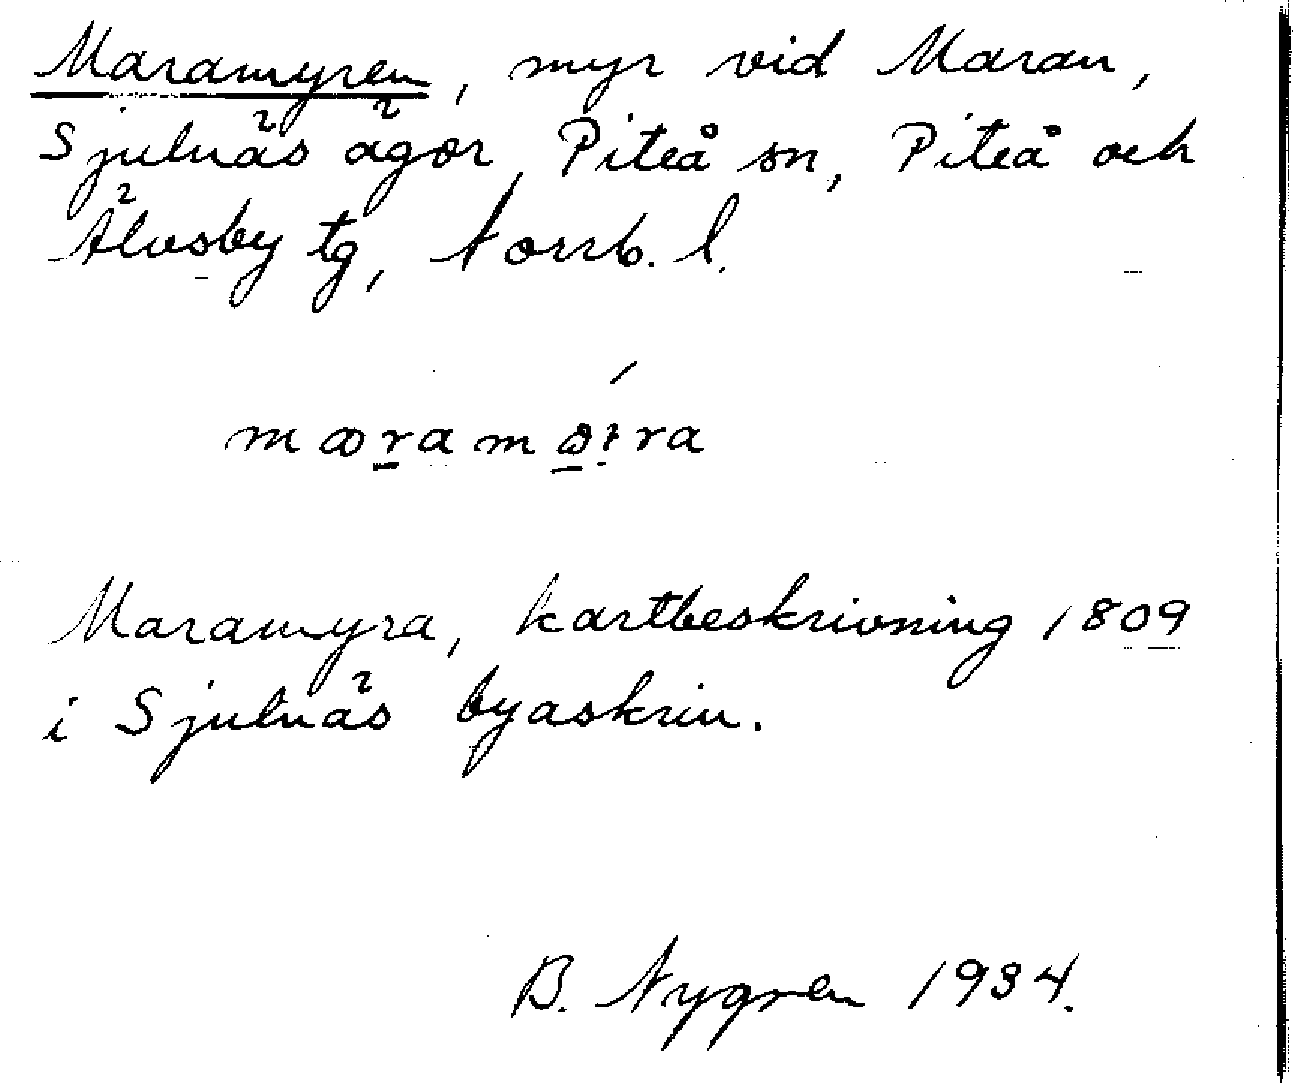 Maramyren, myr vid Maran,
Sjulnäs ägor, Piteå sn, Piteå och
Älvsby tg, Norrb. l.
Maramyra, kartbeskrivning 1809
i Sjulnäs byaskrin.
B. Nygren 1934.